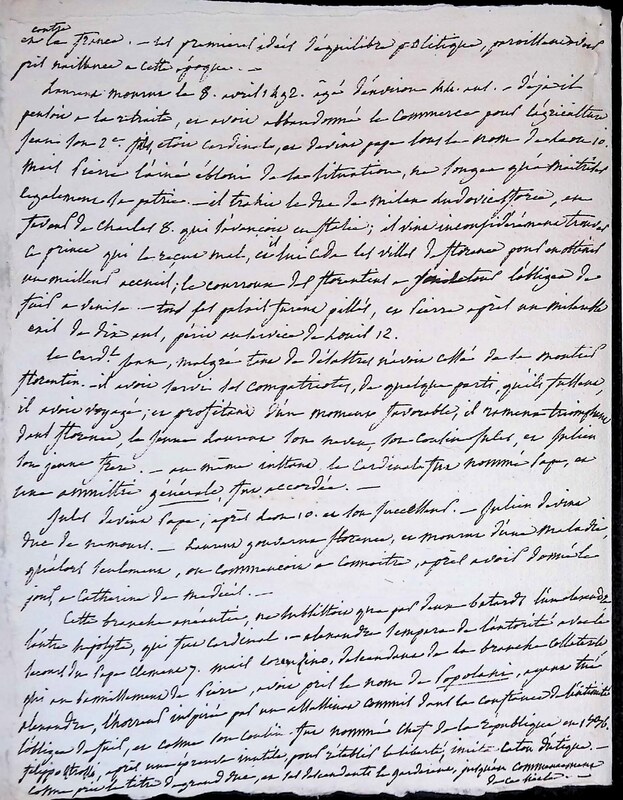 contre
en la france. — les premieres idées d'équilibre politique, paroissent avoir
pris naissance a cette époque. —
Laurent mourut le 8. avril 1492. agé d'environ 44. ans. — déja il
pensoit a la retraite, et avoit abbandonné le commerce pour l'agriculture
jean son 2e. fils, etoit cardinal, et devint pape sous le nom de Leon 10.
mais pierre l'ainé ébloui de sa situation, ne songea qu'a maitriser
également sa patrie. — il trahit le duc de milan ludovic sforce, en
faveur de Charles 8. qui s'avançoit en italie; il vint inconsidérément trouver
ce prince qui le recut mal, et lui céda les villes de florence pour en obtenir
un meilleur accueil; le courroux des florentins a l'obligea de
fuir a venise — tous ses palais furent pillés, et pierre après un misérable
exil de dix ans, périt au service de Louis 12.
Le card.l jean, malgré tant de désastres n'avoit cessé de se montrer
florentin. — il avoit servi ses compatriotes, de quelque parti, qu'ils fussent,
il avoit voyagé; et profitant d'un moment favorable, il ramena triomphant
dans florence, le jeune Laurent son neveu, son cousin jules, et julien
son jeune frere. — au même instant le cardinal fut nommé pape, et
une amnistie générale, fut accordée. —
jules devint pape, après Leon 10. et son successeur. — julien devint
duc de nemours. — Laurent gouverna florence, et mourut d'une maladie,
qu'alors seulement, on commencoit a connoitre, après avoir donné le
jour, a Catherine de medicis. —
Cette branche ne subsistoit que par deux batards l'un alexandre
l'autre hipolyte, qui fut cardinal. — alexandre s'empara de l'autorité avec le
secours du pape Clement 7. mais Lorenzino, descendant de la branche collaterale
qui au bannissement de pierre, avoit pris le nom de Popolani, ayant tué
alexandre, l'horreur inspirée par un assassinat commis dans la confiance de l'intimité
l'obligea de fuir, et cosme son cousin fut nommé chef de la république en
filippo strozzi, après une épreuve inutile, pour rétablir la liberté, imita caton d'utique. —
cosme prit le titre de grand duc, et ses descendants le garderent, jusqu'au commencement
de ce siècle. —